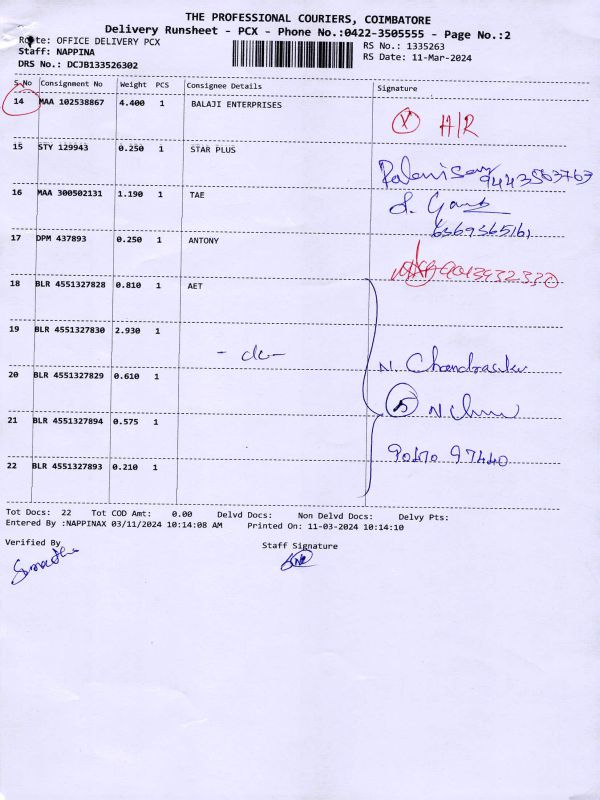 THE PROFESSIONAL COURIERS, COIMBATORE
Delivery Runsheet - PCX - Phone No.:0422-3505555 - Page No.:2
Route: OFFICE DELIVERY PCX
RS No.: 1335263
Staff: NAPPINA
RS Date: 11-Mar-2024
DRS No.: DCJB133526302
S.No Consignment No Weight PCS Consignee Details Signature
14 MAA 102538867 4.400 1 BALAJI ENTERPRISES
X A/R
15 STY 129943 0.250 1 STAR PLUS
9443563763
16 MAA 300502131 1.190 1 TAE
6369365161
17 DPM 437893 0.250 1 ANTONY
18 BLR 4551327828 0.810 1 AET
19 BLR 4551327830 2.930 1
- do -
N. Chandrasekar
20 BLR 4551327829 0.610 1
5
21 BLR 4551327894 0.575 1
97440
22 BLR 4551327893 0.210 1
Tot Docs: 22 Tot COD Amt: 0.00 Delvd Docs: Non Delvd Docs: Delvy Pts:
Entered By :NAPPINAX 03/11/2024 10:14:08 AM Printed On: 11-03-2024 10:14:10
Verified By
Staff Signature